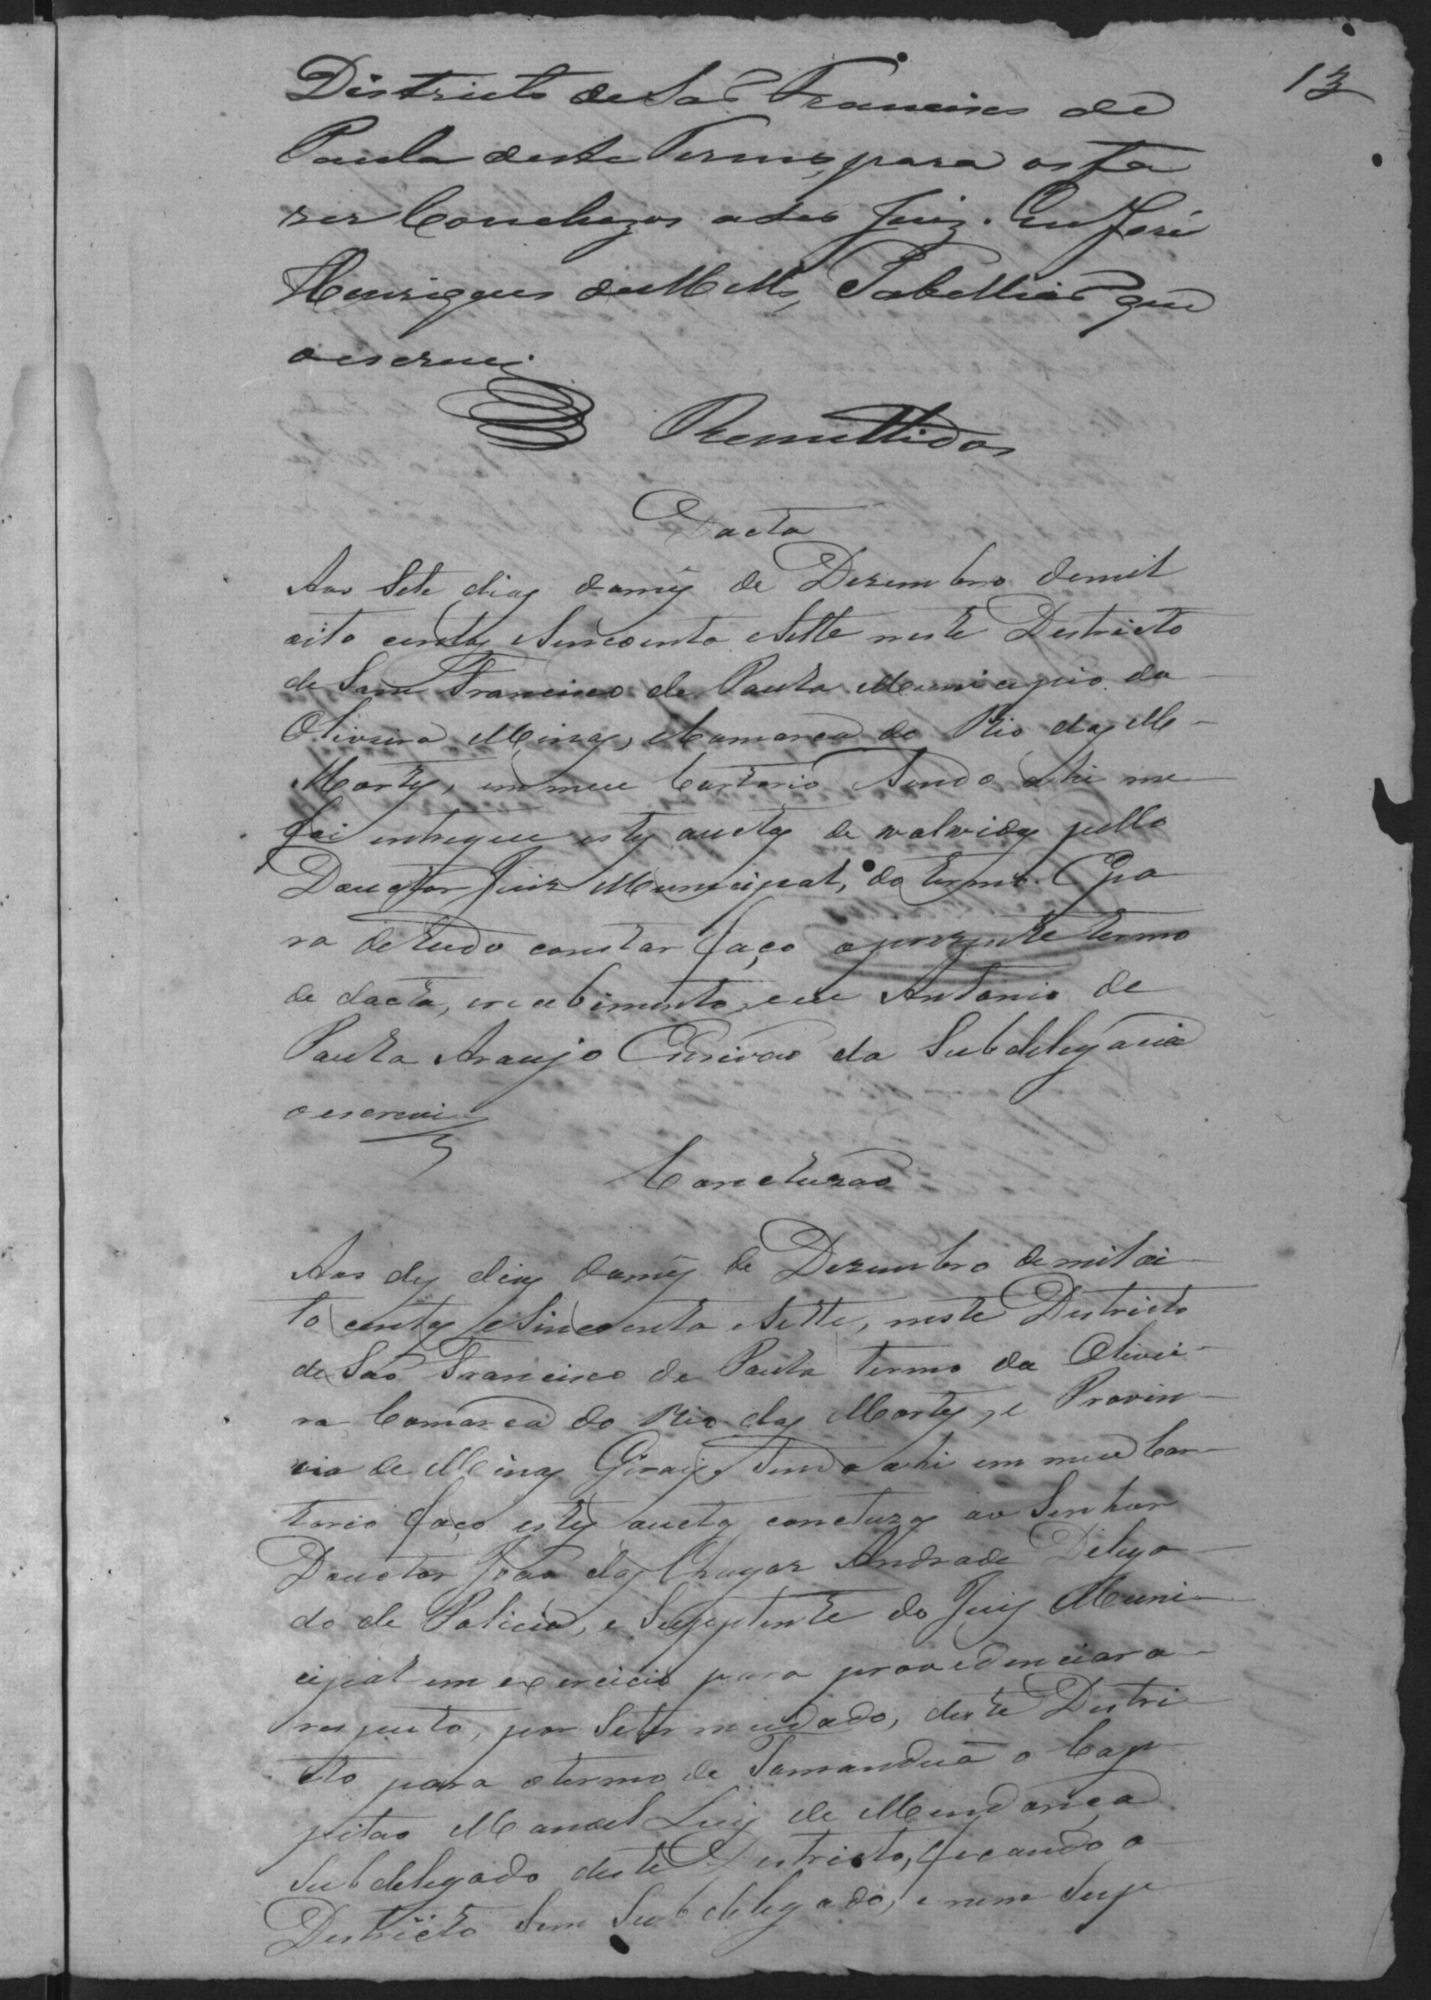 13
Districto de São Francisco de
Paula deste Termo, para os fa
zer Conclusos ao Juiz. Eu José
Henriques de Mello, Tabellião que
o escrevi
Remettidos
Dacta
Aos Sete dias do mes de Dezembro de mil
oito centos e Sincoenta e Sette neste Destricto
de Sam Francisco de Paula Municipio da
Oliveira Minas, Comarca do Rio das M
Mortes, em meu Cartorio Sendo ahi me
foi entregue estes auctos de volvidos pello
Douctor Juiz Municipal, do termo. E pa
ra de tudo constar faço o prezente termo
de dacta, recebimento, eu Antonio de
Paula Araujo Escrivão da Subdelegacia
o escrevi
Concluzão
Aos des dias do mes de Dezembro de mil oi
to centos e Sincoenta e Sette, neste Districto
de São Francisco de Paula termo da Olivei
ra Comarca do Rio das Mortes, e Provin
cia de Minas Geraes, Sendo ahi em meu Car
torio faço estes auctos concluzos ao Senhor
Douctor João das Chagas Andrade Delega
do de Policia, e Supplente do Juis Muni
cipal em exercicio para providenciar a
respeito, por Se ter mudado, deste Destri
cto para o termo de Tamanduá o Cap
pitão Manoel Luis de Mendonça
Subdelegado deste Destricto, ficando o
Destricto Sem Subdelegado, e nem Sup